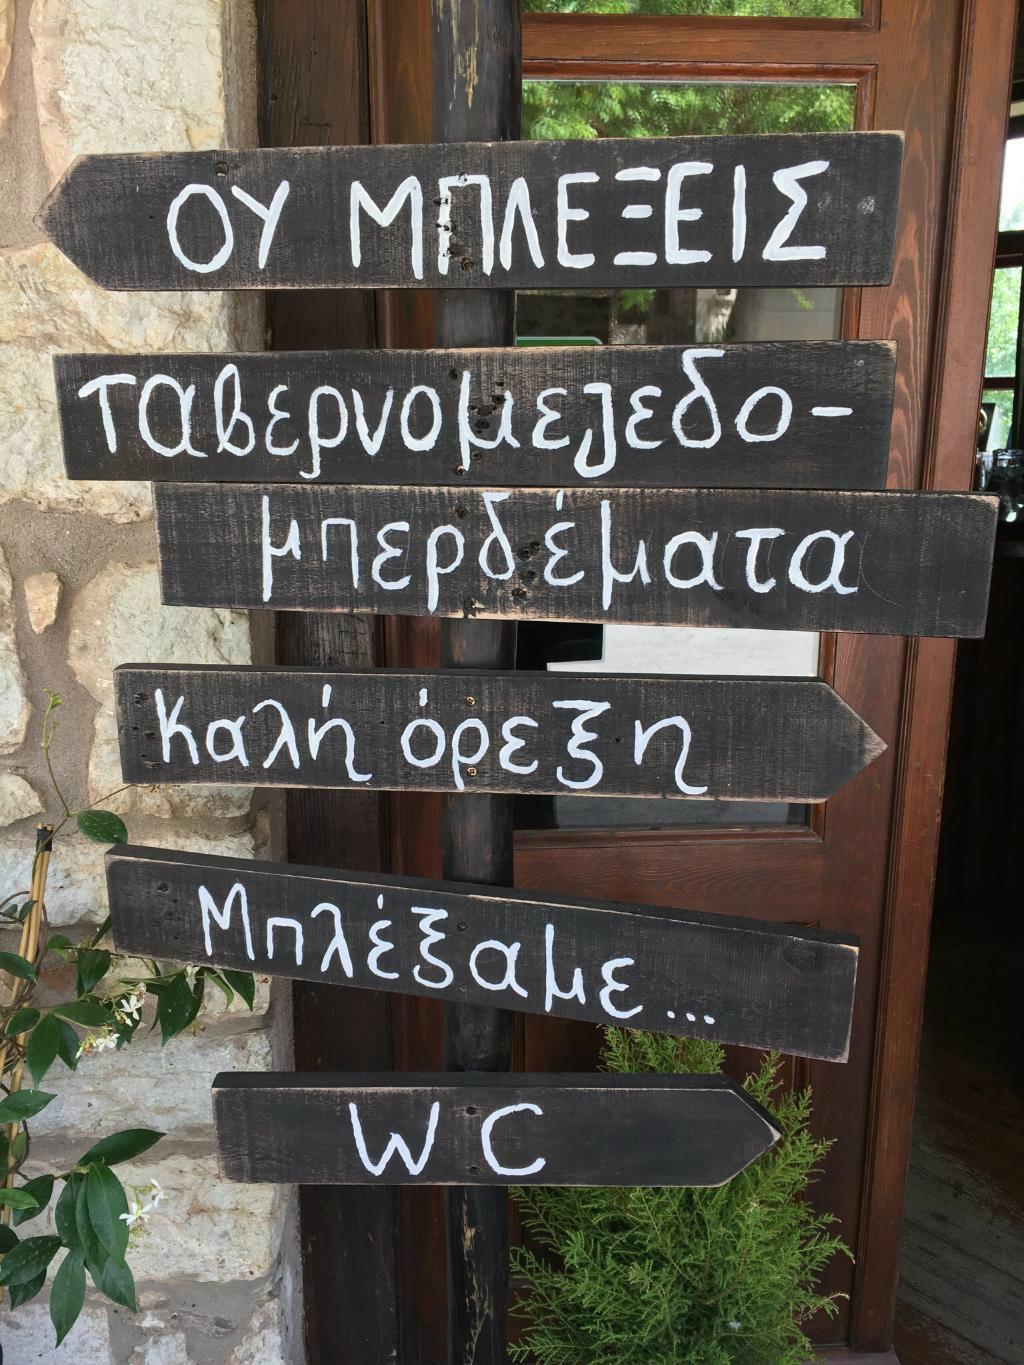 ΟΥ ΜΠΛΕΞΕΙΣ
ταβερνομεζεδο-
μπερδέματα
καλή όρεξη
Μπλέξαμε...
WC